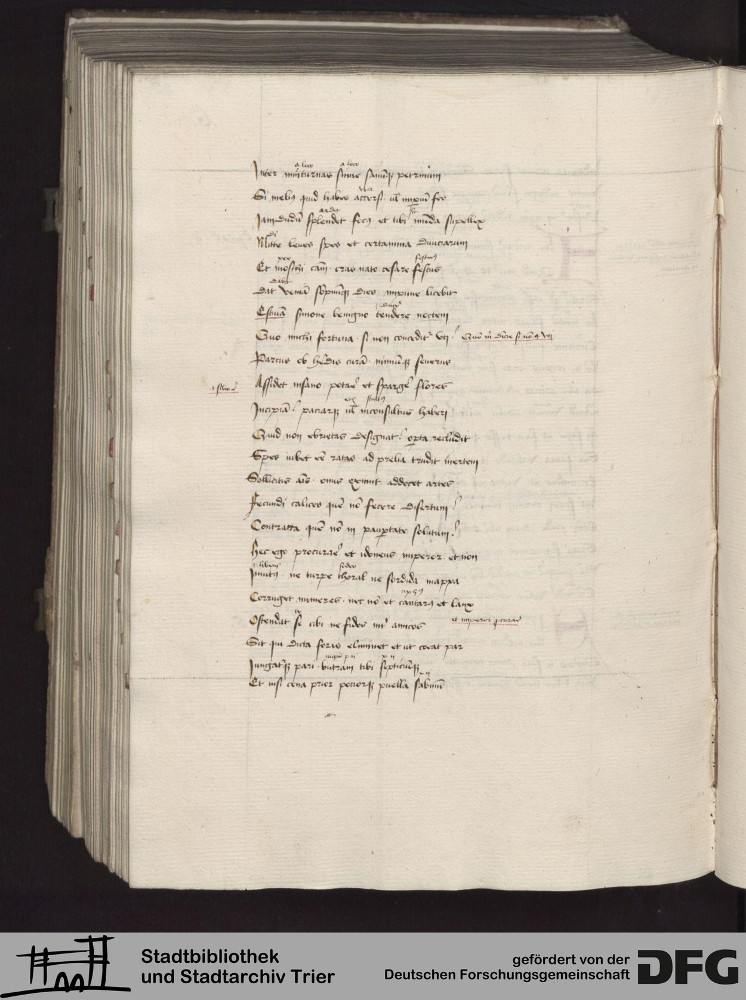 a loco a loco
Inter minturnas sinue sanumq petrinum
Si meliꝰ quid habes accerse ul imperiu fer
Iamdudu splendet focꝰ et tibi munda supellex
Mitte leues spes et certamina diuiciarum
Et moschi cam cras nato cesare festus
Dat venia sopnumq dies impune licebit
Estiua sinone benigno tendere noctem
Quo michi fortuna si non conceditr vti
Parcus ob heredis cura nimiumq seuerus
Assidet insano potare et spargere flores
Incipia paciarq ul inconsultus haberi
Quid non ebrietas designat opta recludit
Spes iubet ee ratas ad prelia trudit inertem
Sollicitis ais onus eximit addocet artes
Fecundi calices que no fecere disertum
Contracta que no in paupertate solutum
Hec ego procurare et idoneus imperor et non
Inuitꝰ ne turpe thoral ne sordida mappa
Corruget numeres nec no et cantarꝰ et lanx
Ostendat se tibi ne fidos int amicos
Sit qui dicta foras eliminet et ut coeat par
Iungaturq pari butram tibi septiciumq
Et nisi cena prior pociorq puella sabinu
Stadtbibliothek
und Stadtarchiv Trier
gefördert von der
Deutschen Forschungsgemeinschaft
DFG